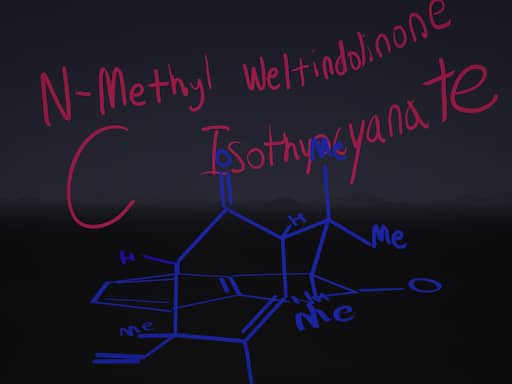 N-Methyl Weltindolinone
C Isothyocyanate
O
Me
H
Me
H
O
Me
Me